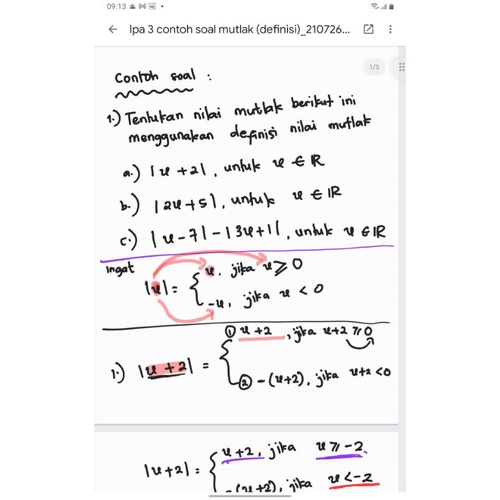 09:13
Ipa 3 contoh soal mutlak (definisi)_210726...
1/5
Contoh soal :
1.) Tentukan nilai mutlak berikut ini
menggunakan definisi nilai mutlak
a.) |x + 2| , untuk x ∈ ℝ
b.) |2x + 5| , untuk x ∈ ℝ
c.) |x - 7| - |3x + 1| , untuk x ∈ ℝ
Ingat
|x| = { x, jika x ≥ 0
-x, jika x < 0
① x + 2 , jika x+2 ≥ 0
1.) |x + 2| = {
② -(x+2), jika x+2 < 0
|x+2| = { x+2, jika x ≥ -2
-(x+2), jika x < -2